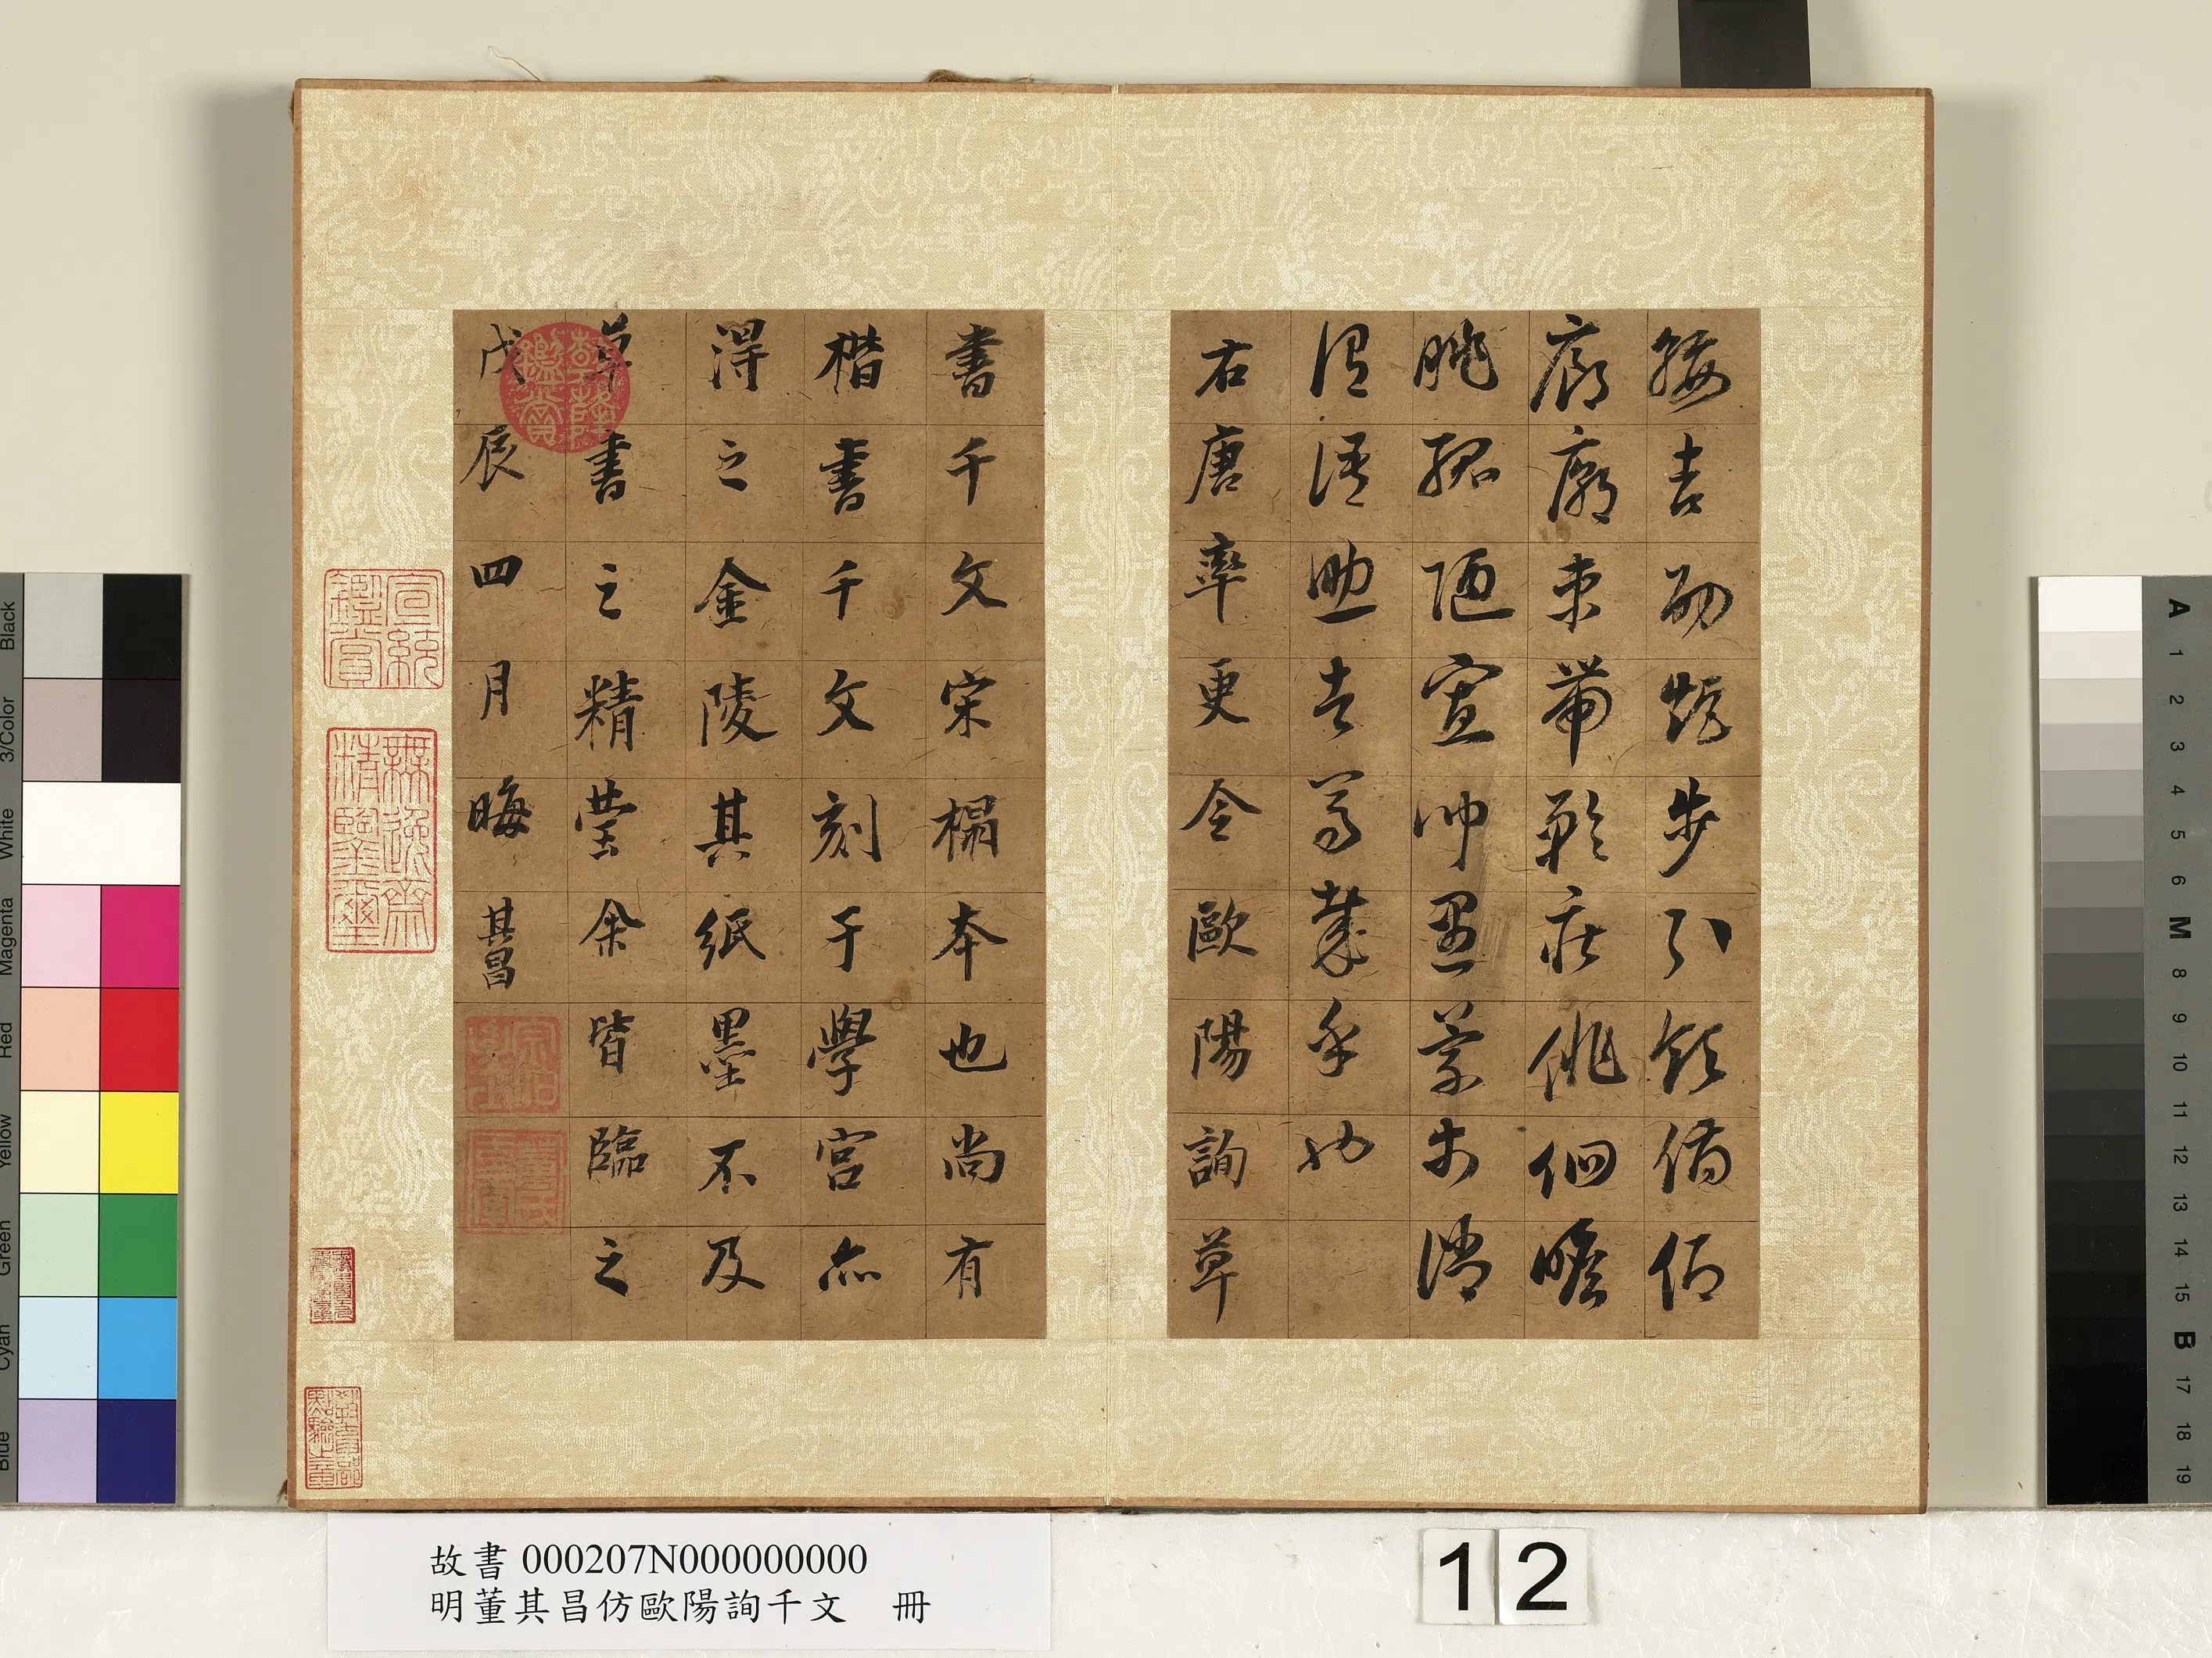 綏吉劭矩步引領俯仰
廊廟束帶矜莊徘徊瞻
眺孤陋寡聞愚蒙等誚
謂語助者焉哉乎也
右唐率更令歐陽詢草
書千文宋榻本也尚有
楷書千文刻于學宮亦
得之金陵其紙墨不及
草書之精瑩余皆臨之
戊辰四月晦其昌
宣統鑑賞
無逸齋精鑒璽
乾隆鑑賞
故書 000207N000000000
明董其昌仿歐陽詢千文 冊
12
Black
3/Color
White
Magenta
Red
Yellow
Green
Cyan
Blue
A
1
2
3
4
5
6
M
8
9
10
11
12
13
14
15
B
17
18
19